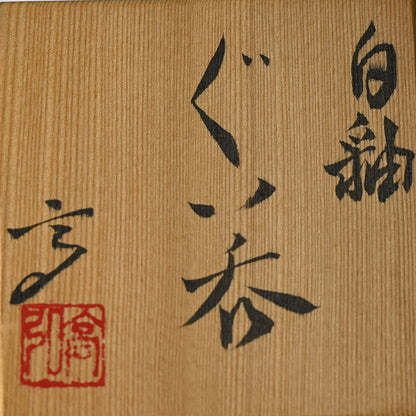 白釉
ぐい呑